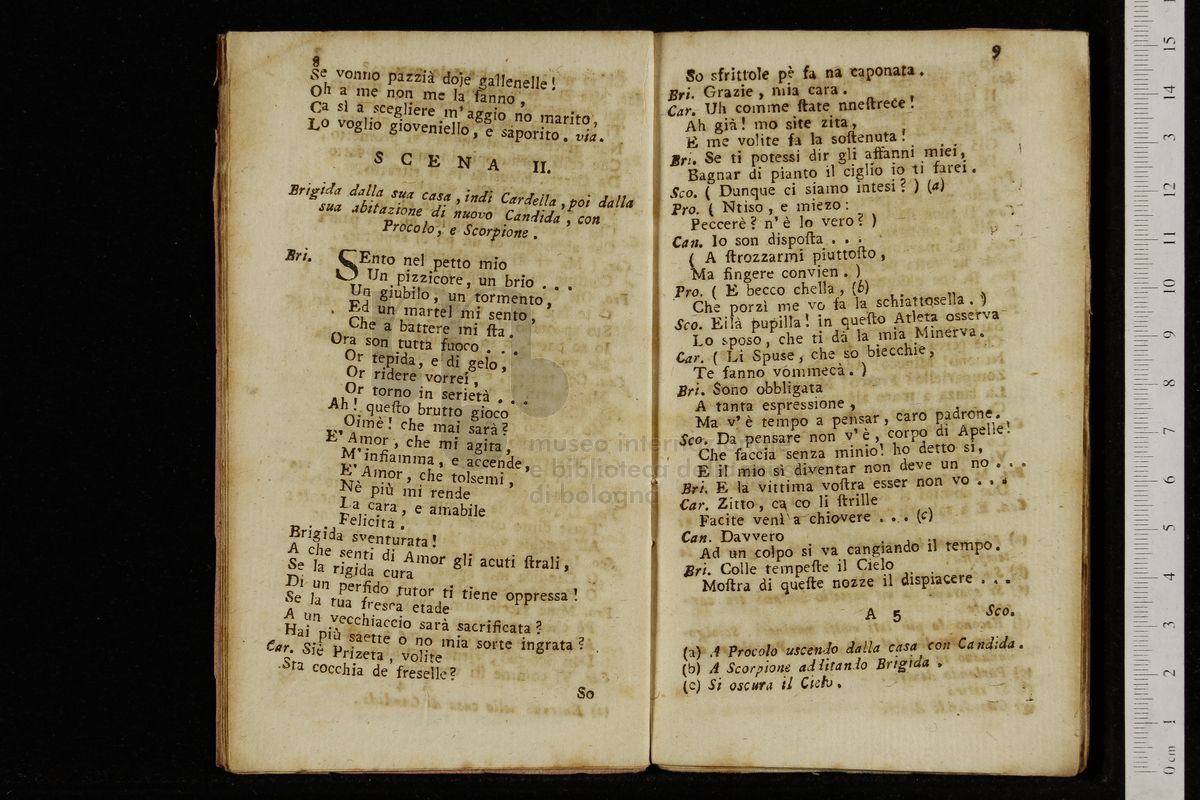 8
Se vonno pazzià doje gallenelle!
Oh a me non me la fanno,
Ca sì a scegliere m'aggio no marito,
Lo voglio gioveniello, e saporito. via.
SCENA II.
Brigida dalla sua casa, indi Cardella, poi dalla
sua abitazione di nuovo Candida, con
Procolo, e Scorpione.
Bri. SEnto nel petto mio
Un pizzicore, un brio...
Un giubilo, un tormento,
Ed un martel mi sento,
Che a battere mi ſta.
Ora son tutta fuoco...
Or tepida, e di gelo,
Or ridere vorrei,
Or torno in serietà...
Ah! queſto brutto gioco
Oimè! che mai sarà?
E' Amor, che mi agita,
M'infiamma, e accende,
E' Amor, che tolsemi,
Nè più mi rende
La cara, e amabile
Felicita.
Brigida sventurata!
A che senti di Amor gli acuti ſtrali,
Se la rigida cura
Di un perfido tutor ti tiene oppressa!
Se la tua fresca etade
A un vecchiaccio sarà sacrificata?
Hai più saette o no mia sorte ingrata?
Car. Siè Prizeta, volite
Sta cocchia de freselle?
So
9
So sfrittole pè fa na caponata.
Bri. Grazie, mia cara.
Car. Uh comme ſtate nneſtrece!
Ah già! mo site zita,
E me volite fa la soſtenuta!
Bri. Se ti potessi dir gli affanni miei,
Bagnar di pianto il ciglio io ti farei.
Sco. (Dunque ci siamo intesi?) (a)
Pro. (Ntiso, e miezo:
Peccerè? n'è lo vero?)
Can. Io son dispoſta...
(A ſtrozzarmi piuttoſto,
Ma fingere convien.)
Pro. (E becco chella, (b)
Che porzì me vo fa la schiattosella.)
Sco. Eilà pupilla! in queſto Atleta osserva
Lo sposo, che ti dà la mia Minerva.
Car. (Li Spuse, che so biecchie,
Te fanno vommecà.)
Bri. Sono obbligata
A tanta espressione,
Ma v'è tempo a pensar, caro padrone.
Sco. Da pensare non v'è, corpo di Apelle!
Che faccia senza minio! ho detto sì,
E il mio sì diventar non deve un no...
Bri. E la vittima voſtra esser non vo...
Car. Zitto, ca co li ſtrille
Facite venì a chiovere... (c)
Can. Davvero
Ad un colpo si va cangiando il tempo.
Bri. Colle tempeſte il Cielo
Moſtra di queſte nozze il dispiacere...
A 5 Sco.
(a) A Procolo uscendo dalla casa con Candida.
(b) A Scorpione additando Brigida.
(c) Si oscura il Cielo.
museo internazionale
e biblioteca della
di bologna